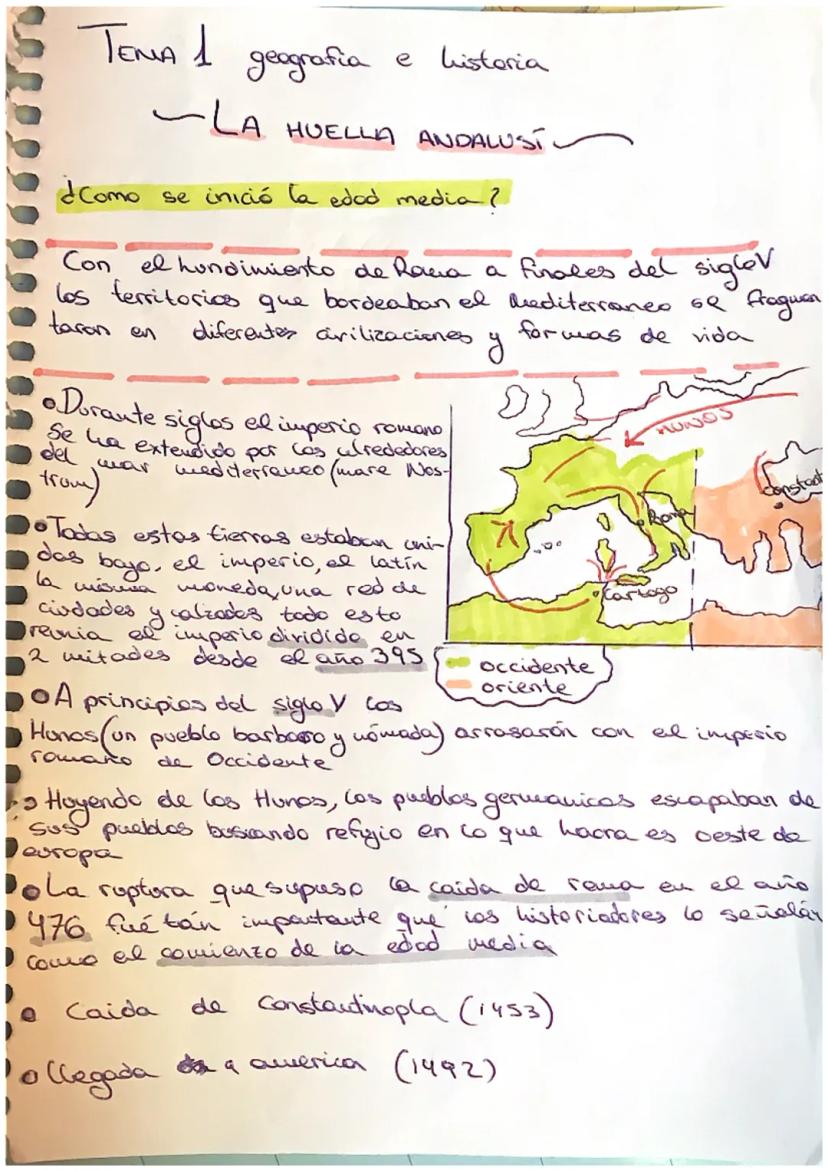 TEMA 1 geografia e historia
LA HUELLA ANDALUSÍ
¿Como se inició la edad media?
Con el hundimiento de Roma a finales del siglo V
los territorios que bordeaban el Mediterraneo se fragmen
taron en diferentes civilizaciones y formas de vida
Durante siglos el imperio romano
se ha extendido por los alrededores
del mar mediterraneo (mare Nos-
trum)
Todas estas tierras estaban uni-
das bajo, el imperio, el latín
la misma moneda, una red de
ciudades y calzadas todo esto
reunia el imperio dividido en
2 mitades desde el año 395
HUNOS
Constant
Roma
Cartago
occidente
oriente
A principios del siglo V los
Hunos (un pueblo barbaro y nómada) arrasarón con el imperio
romano de Occidente
Huyendo de los Hunos, los pueblos germanicos escapaban de
sus pueblos buscando refugio en lo que hacra es oeste de
europa
La ruptura que supuso la caida de roma en el año
476 fué tán importante que los historiadores lo señalán
como el comienzo de la edad media
Caida de Constantinopla (1453)
llegada a america (1492)